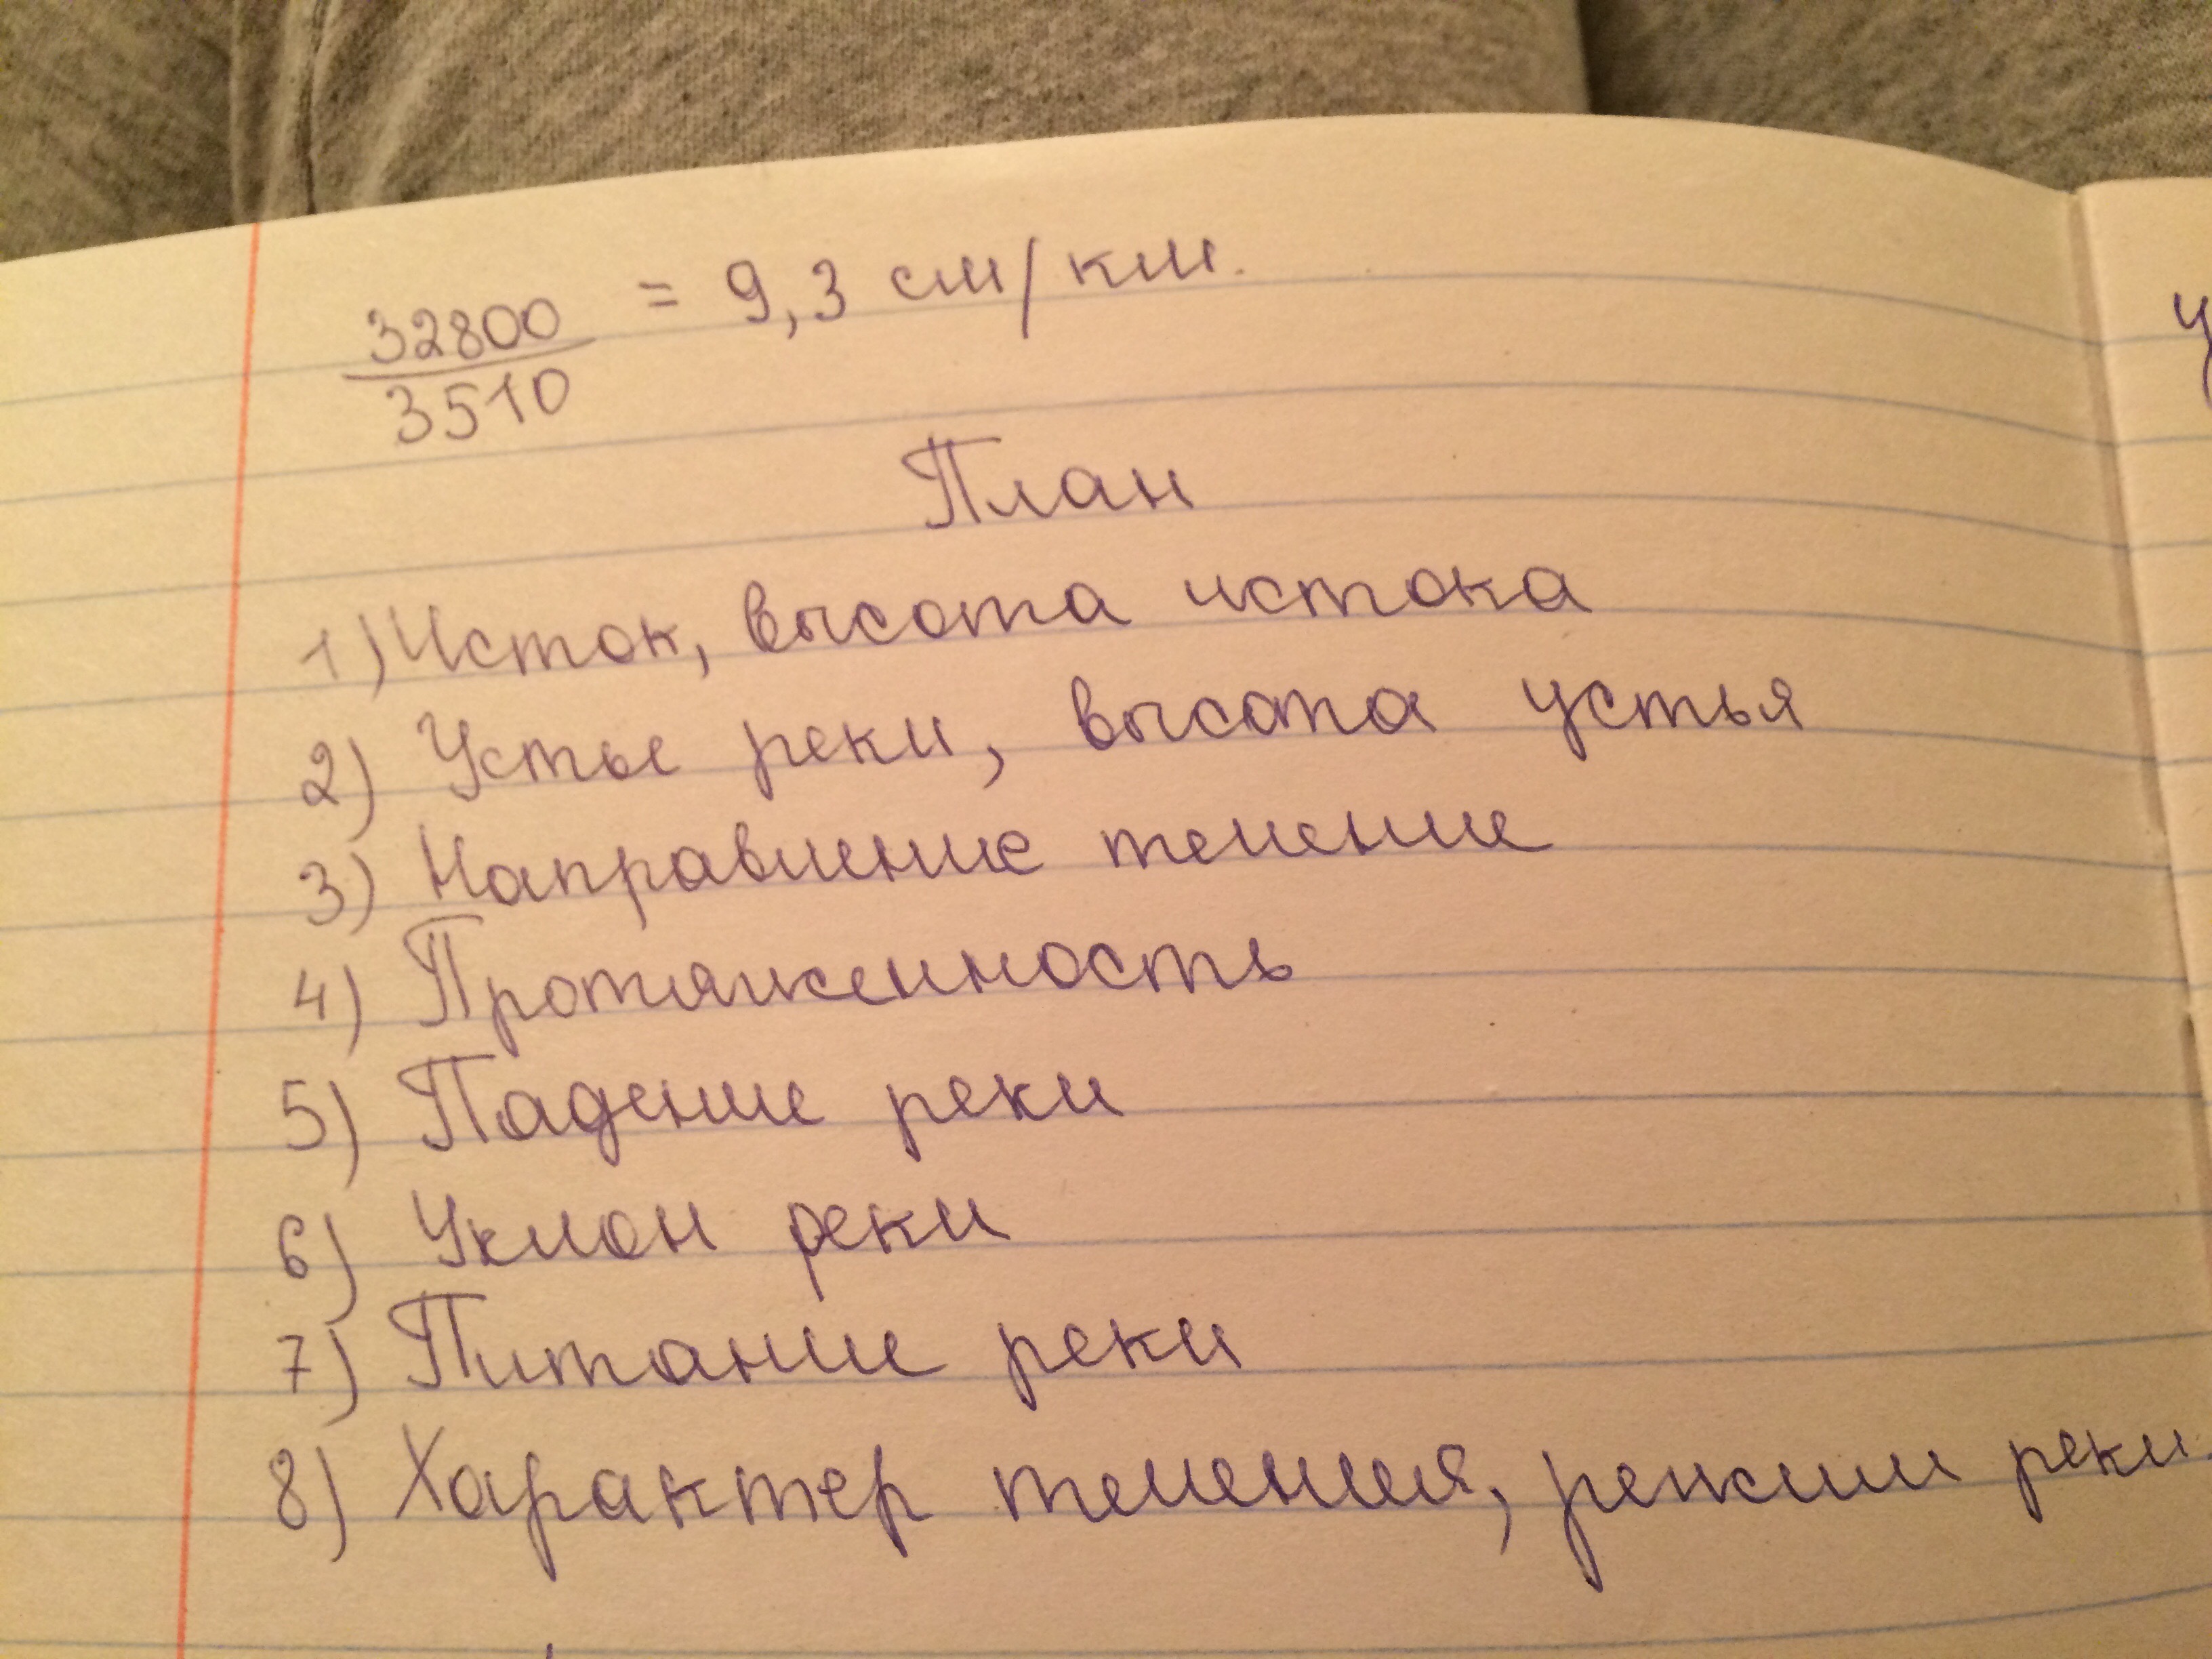 32800 / 3510 = 9,3 см/км.
План
1) Исток, высота истока
2) Устье реки, высота устья
3) Направление течение
4) Протяженность
5) Падение реки
6) Уклон реки
7) Питание реки
8) Характер течения, режим реки.